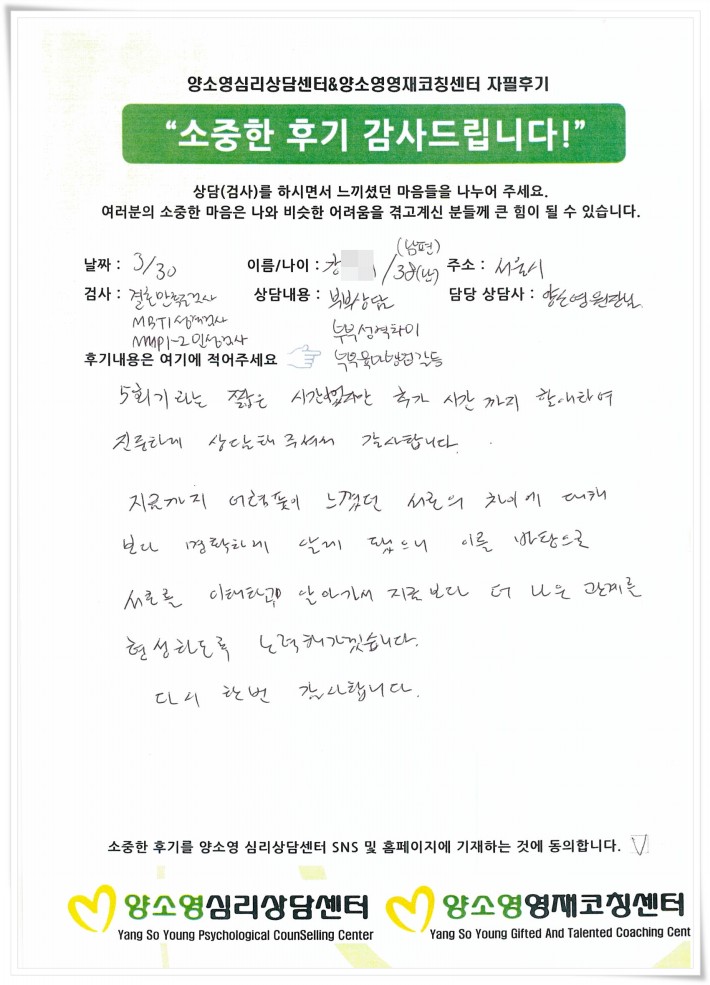 양소영심리상담센터&양소영영재코칭센터 자필후기
“소중한 후기 감사드립니다!”
상담(검사)를 하시면서 느끼셨던 마음들을 나누어 주세요.
여러분의 소중한 마음은 나와 비슷한 어려움을 겪고계신 분들께 큰 힘이 될 수 있습니다.
(남편)
날짜 : 3/30 이름/나이 : 강 /38(만) 주소 : 서울시
검사 : 결혼만족도검사 상담내용 : 부부상담 담당 상담사 : 양소영 원장님
MBTI 성격검사 부부성격차이
MMPI-2 인성검사
후기내용은 여기에 적어주세요
5회기라는 짧은 시간이었지만 추가 시간까지 할애하여
진중하게 상담해 주셔서 감사합니다.
지금까지 어렴풋이 느꼈던 서로의 차이에 대해
보다 명확하게 알게 됐으니 이를 바탕으로
서로를 이해하고 알아가서 지금보다 더 나은 관계를
형성하도록 노력해가겠습니다.
다시 한번 감사합니다.
소중한 후기를 양소영 심리상담센터 SNS 및 홈페이지에 기재하는 것에 동의합니다. V
양소영심리상담센터 양소영영재코칭센터
Yang So Young Psychological CounSelling Center Yang So Young Gifted And Talented Coaching Cent